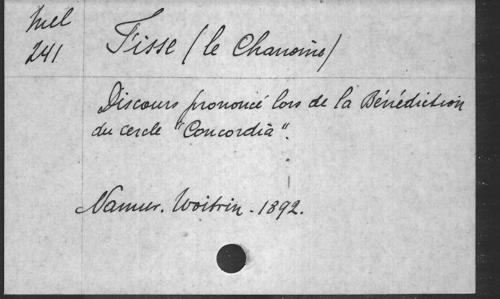 Mel
241
Fisse (le Chanoine)
Discours prononcé lors de la Bénédiction
du cercle "Concordia".
Namur. Woitrin - 1892.